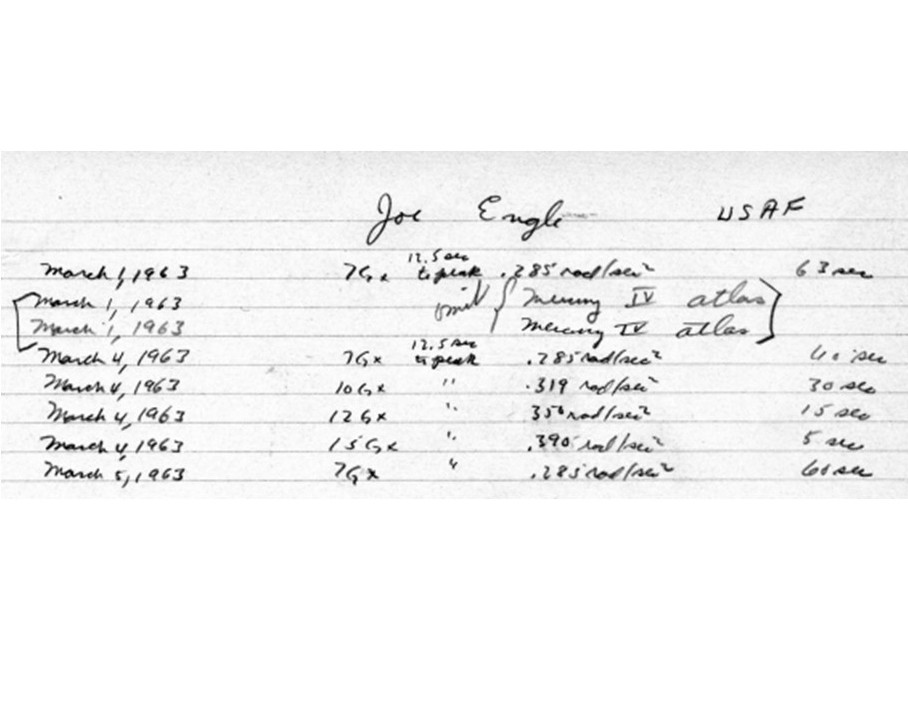 Joe Engle USAF
March 1, 1963 7Gx 12.5 sec to peak .285 rad/sec² 63 sec
[March 1, 1963 omit { Mercury IV atlas]
[March 1, 1963 Mercury IV atlas]
March 4, 1963 7Gx 12.5 sec to peak .285 rad/sec² sec
March 4, 1963 10Gx " .319 rad/sec² 30 sec
March 4, 1963 12Gx " 350 rad/sec² 15 sec
March 4, 1963 15Gx " .390 rad/sec² 5 sec
March 5, 1963 7Gx " .285 rad/sec² 60 sec